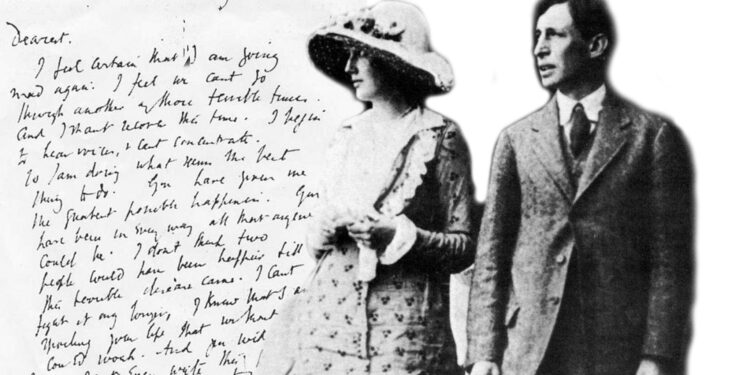 Dearest.
I feel certain that I am going
mad again: I feel we cant go
through another of those terrible times.
And I shant recover this time. I begin
to hear voices, & cant concentrate.
So I am doing what seems the best
thing to do. You have given me
the greatest possible happiness. You
have been in every way all that anyone
could be. I dont think two
people could have been happier till
this terrible disease came. I cant
fight it any longer, I know that I am
spoiling your life that without
could work. And you will
even write this